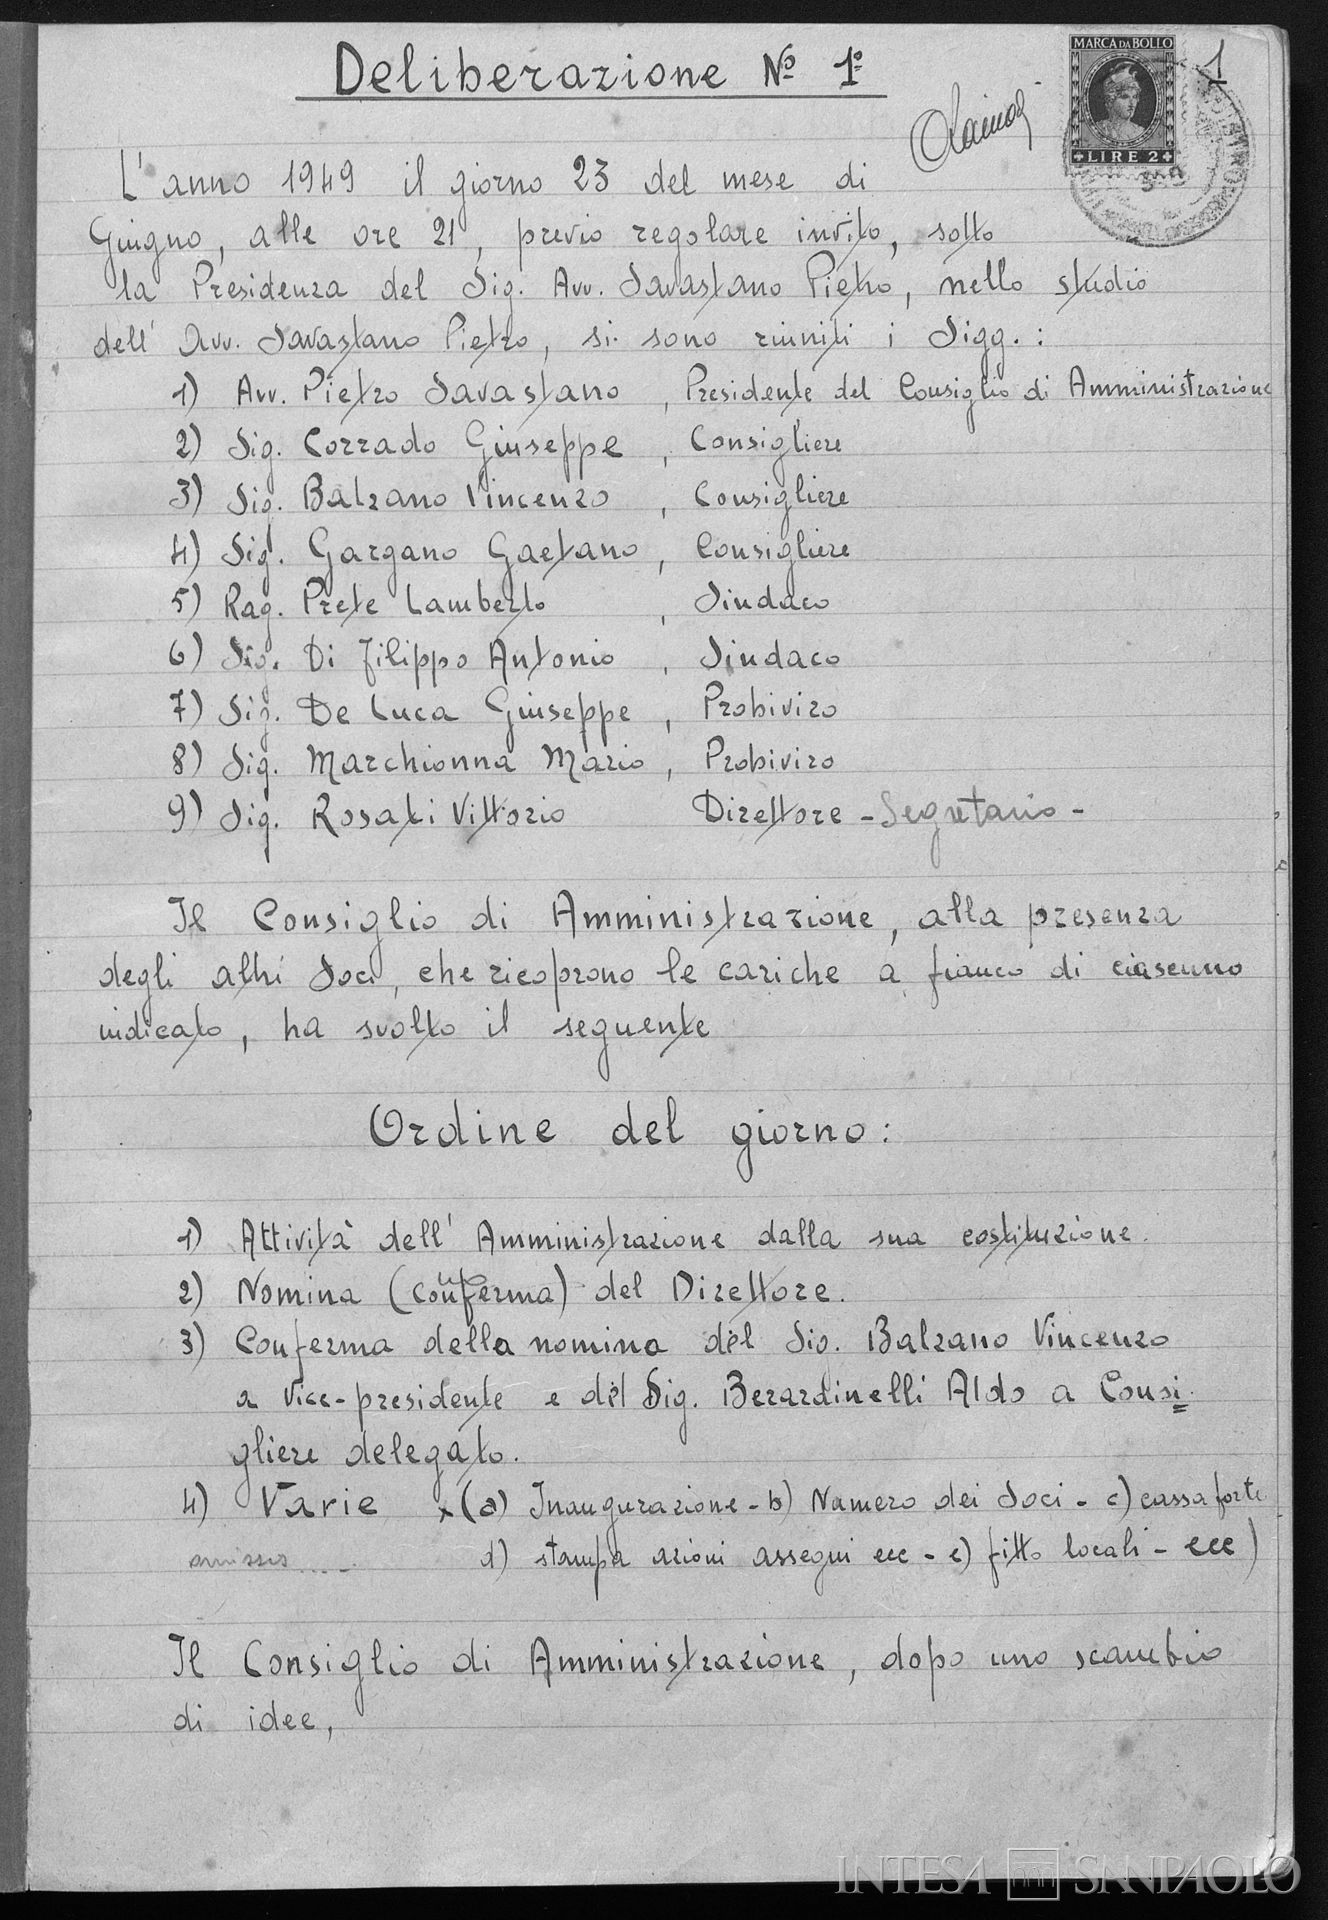 Deliberazione Nº 1º
1
MARCA DA BOLLO
LIRE 2
L'anno 1949 il giorno 23 del mese di
Giugno, alle ore 21, previo regolare invito, sotto
la Presidenza del Sig. Avv. Savastano Pietro, nello studio
dell'Avv. Savastano Pietro, si sono riuniti i Sigg.:
1) Avv. Pietro Savastano, Presidente del Consiglio di Amministrazione
2) Sig. Corrado Giuseppe, Consigliere
3) Sig. Balzano Vincenzo, Consigliere
4) Sig. Gargano Gaetano, Consigliere
5) Rag. Prete Lamberto, Sindaco
6) Sig. Di Filippo Antonio, Sindaco
7) Sig. De Luca Giuseppe, Probiviro
8) Sig. Marchionna Mario, Probiviro
9) Sig. Rosati Vittorio Direttore - Segretario -
Il Consiglio di Amministrazione, alla presenza
degli altri Soci, che ricoprono le cariche a fianco di ciascuno
indicato, ha svolto il seguente
Ordine del giorno:
1) Attività dell'Amministrazione dalla sua costituzione.
2) Nomina (conferma) del Direttore.
3) Conferma della nomina del Sig. Balzano Vincenzo
a Vice-presidente e del Sig. Berardinelli Aldo a Consi
gliere delegato.
4) Varie x (a) Inaugurazione - b) Numero dei Soci - c) cassa forte
omissis d) stampa azioni assegni ecc - e) fitto locali - ecc)
Il Consiglio di Amministrazione, dopo uno scambio
di idee,
INTESA SANPAOLO